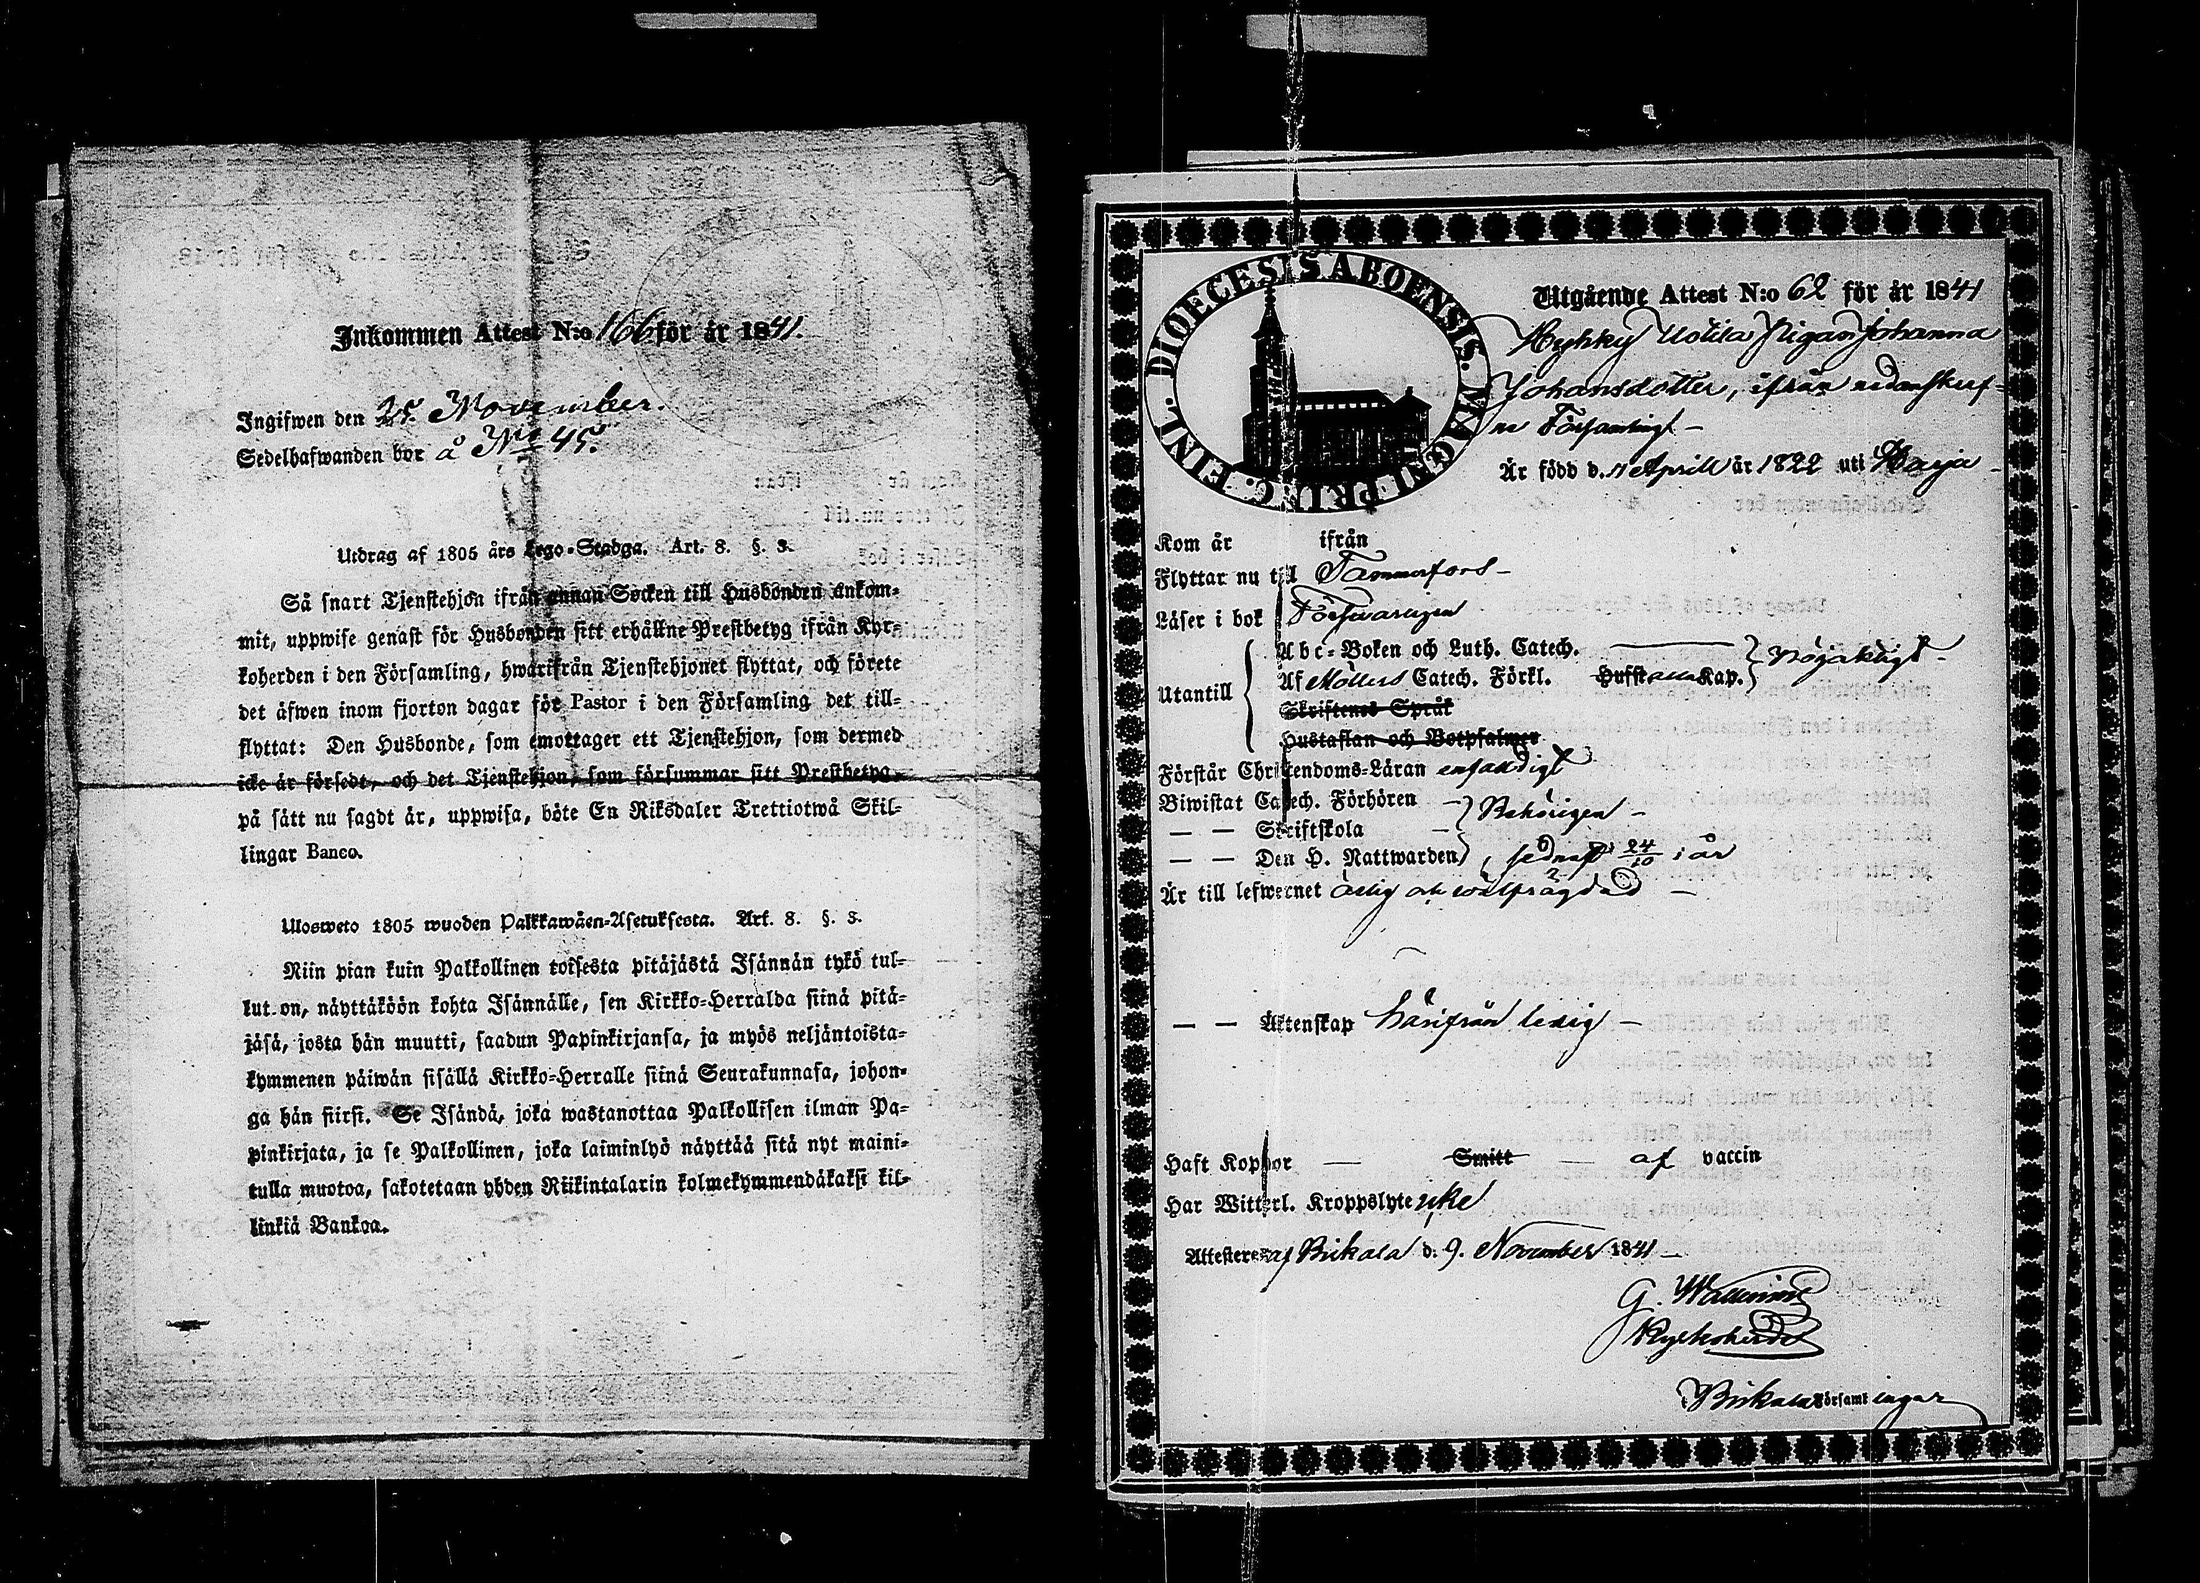 Inkommen Attest N:o 166 för år 1841.
Ingifwen den 25 November.
Sedelhafwanden bor å No 45.
Utdrag af 1805 års Lego-Stadga. Art. 8. §. 3.
Så snart Tjenstehjon ifrån annan Socken till Husbonden ankom-
mit, uppwise genast för Husbonden sitt erhållne Prestbetyg ifrån Kyr-
koherden i den Församling, hwarifrån Tjenstehjonet flyttat, och förete
det äfwen inom fjorton dagar för Pastor i den Församling det till-
flyttat: Den Husbonde, som emottager ett Tjenstehjon, som dermed
icke är försedt, och det Tjenstehjon, som försummar sitt Prestbetyg,
på sätt nu sagdt är, uppwisa, böte En Riksdaler Trettiotwå Skil-
lingar Banco.
Ulosweto 1805 wuoden Palkkawäen-Asetuksesta. Art. 8. §. 3.
Niin pian kuin Palkollinen toisesta pitäjästä Isännän tykö tul-
lut on, näyttäköön kohta Isännälle, sen Kirkko-Herralda siinä pitä-
jäsä, josta hän muutti, saadun Papinkirjansa, ja myös neljäntoista-
kymmenen päiwän sisällä Kirkko-Herralle siinä Seurakunnasa, johon-
ga hän siirsi. Se Isändä, joka wastanottaa Palkollisen ilman Pa-
pinkirjata, ja se Palkollinen, joka laiminlyö näyttää sitä nyt maini-
tulla muotoa, sakotetaan yhden Riikintalarin kolmekymmendäkaksi kil-
linkiä Bankoa.
DIOECESIS ABOENSIS. MAGNI PRINC. FINL.
Utgående Attest N:o 62 för år 1841
Hyhky Uotila Pigan Johanna
Johansdotter, ifrån nedanskref-
ne Församling -
Är född d. 11 Aprill år 1822 uti Harja -
Kom år ifrån
Flyttar nu till Tammerfors -
Läser i bok Försvarligen
Utantill
Abc-Boken och Luth. Catech. Nöjaktligt -
Af Möllers Catech. Förkl. Hufst alla Kap.
Skriftenes Språk
Hustaflan och Botpsalmer
Förstår Christendoms-Läran enfaldigt
Biwistat Catech. Förhören - Behörigen -
— — Skriftskola -
— — Den H. Nattwarden, sednast 24/10 i år
Är till lefwernet ärlig och wälfrägdad -
— — Äktenskap härifrån ledig -
Haft Koppor — Smitt — af vaccin
Har Witterl. Kroppslyte icke
Attesteras af Birkala d. 9. November 1841 -
G. Wallenius
Kyrkoherde
Birkala Församlingar